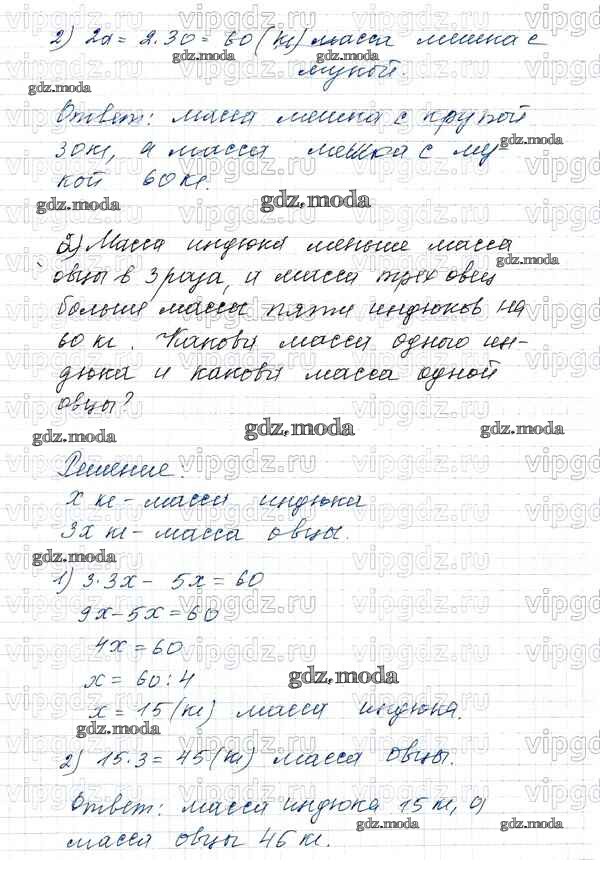 2) 2а = 2·30 = 60 (кг) масса мешка с
мукой.
Ответ: масса мешка с крупой
30 кг, а масса мешка с му
кой 60 кг.
2) Масса индюка меньше масса
овцы в 3 раза, а масса трех овец
больше массы пяти индюков на
60 кг. Какова масса одного ин-
дюка и какова масса одной
овцы?
Решение.
х кг - масса индюка
3х кг - масса овцы.
1) 3·3х - 5х = 60
9х - 5х = 60
4х = 60
х = 60 : 4
х = 15 (кг) масса индюка.
2) 15·3 = 45 (кг) масса овцы.
Ответ: масса индюка 15 кг, а
масса овцы 45 кг.
gdz.moda
vipgdz.ru